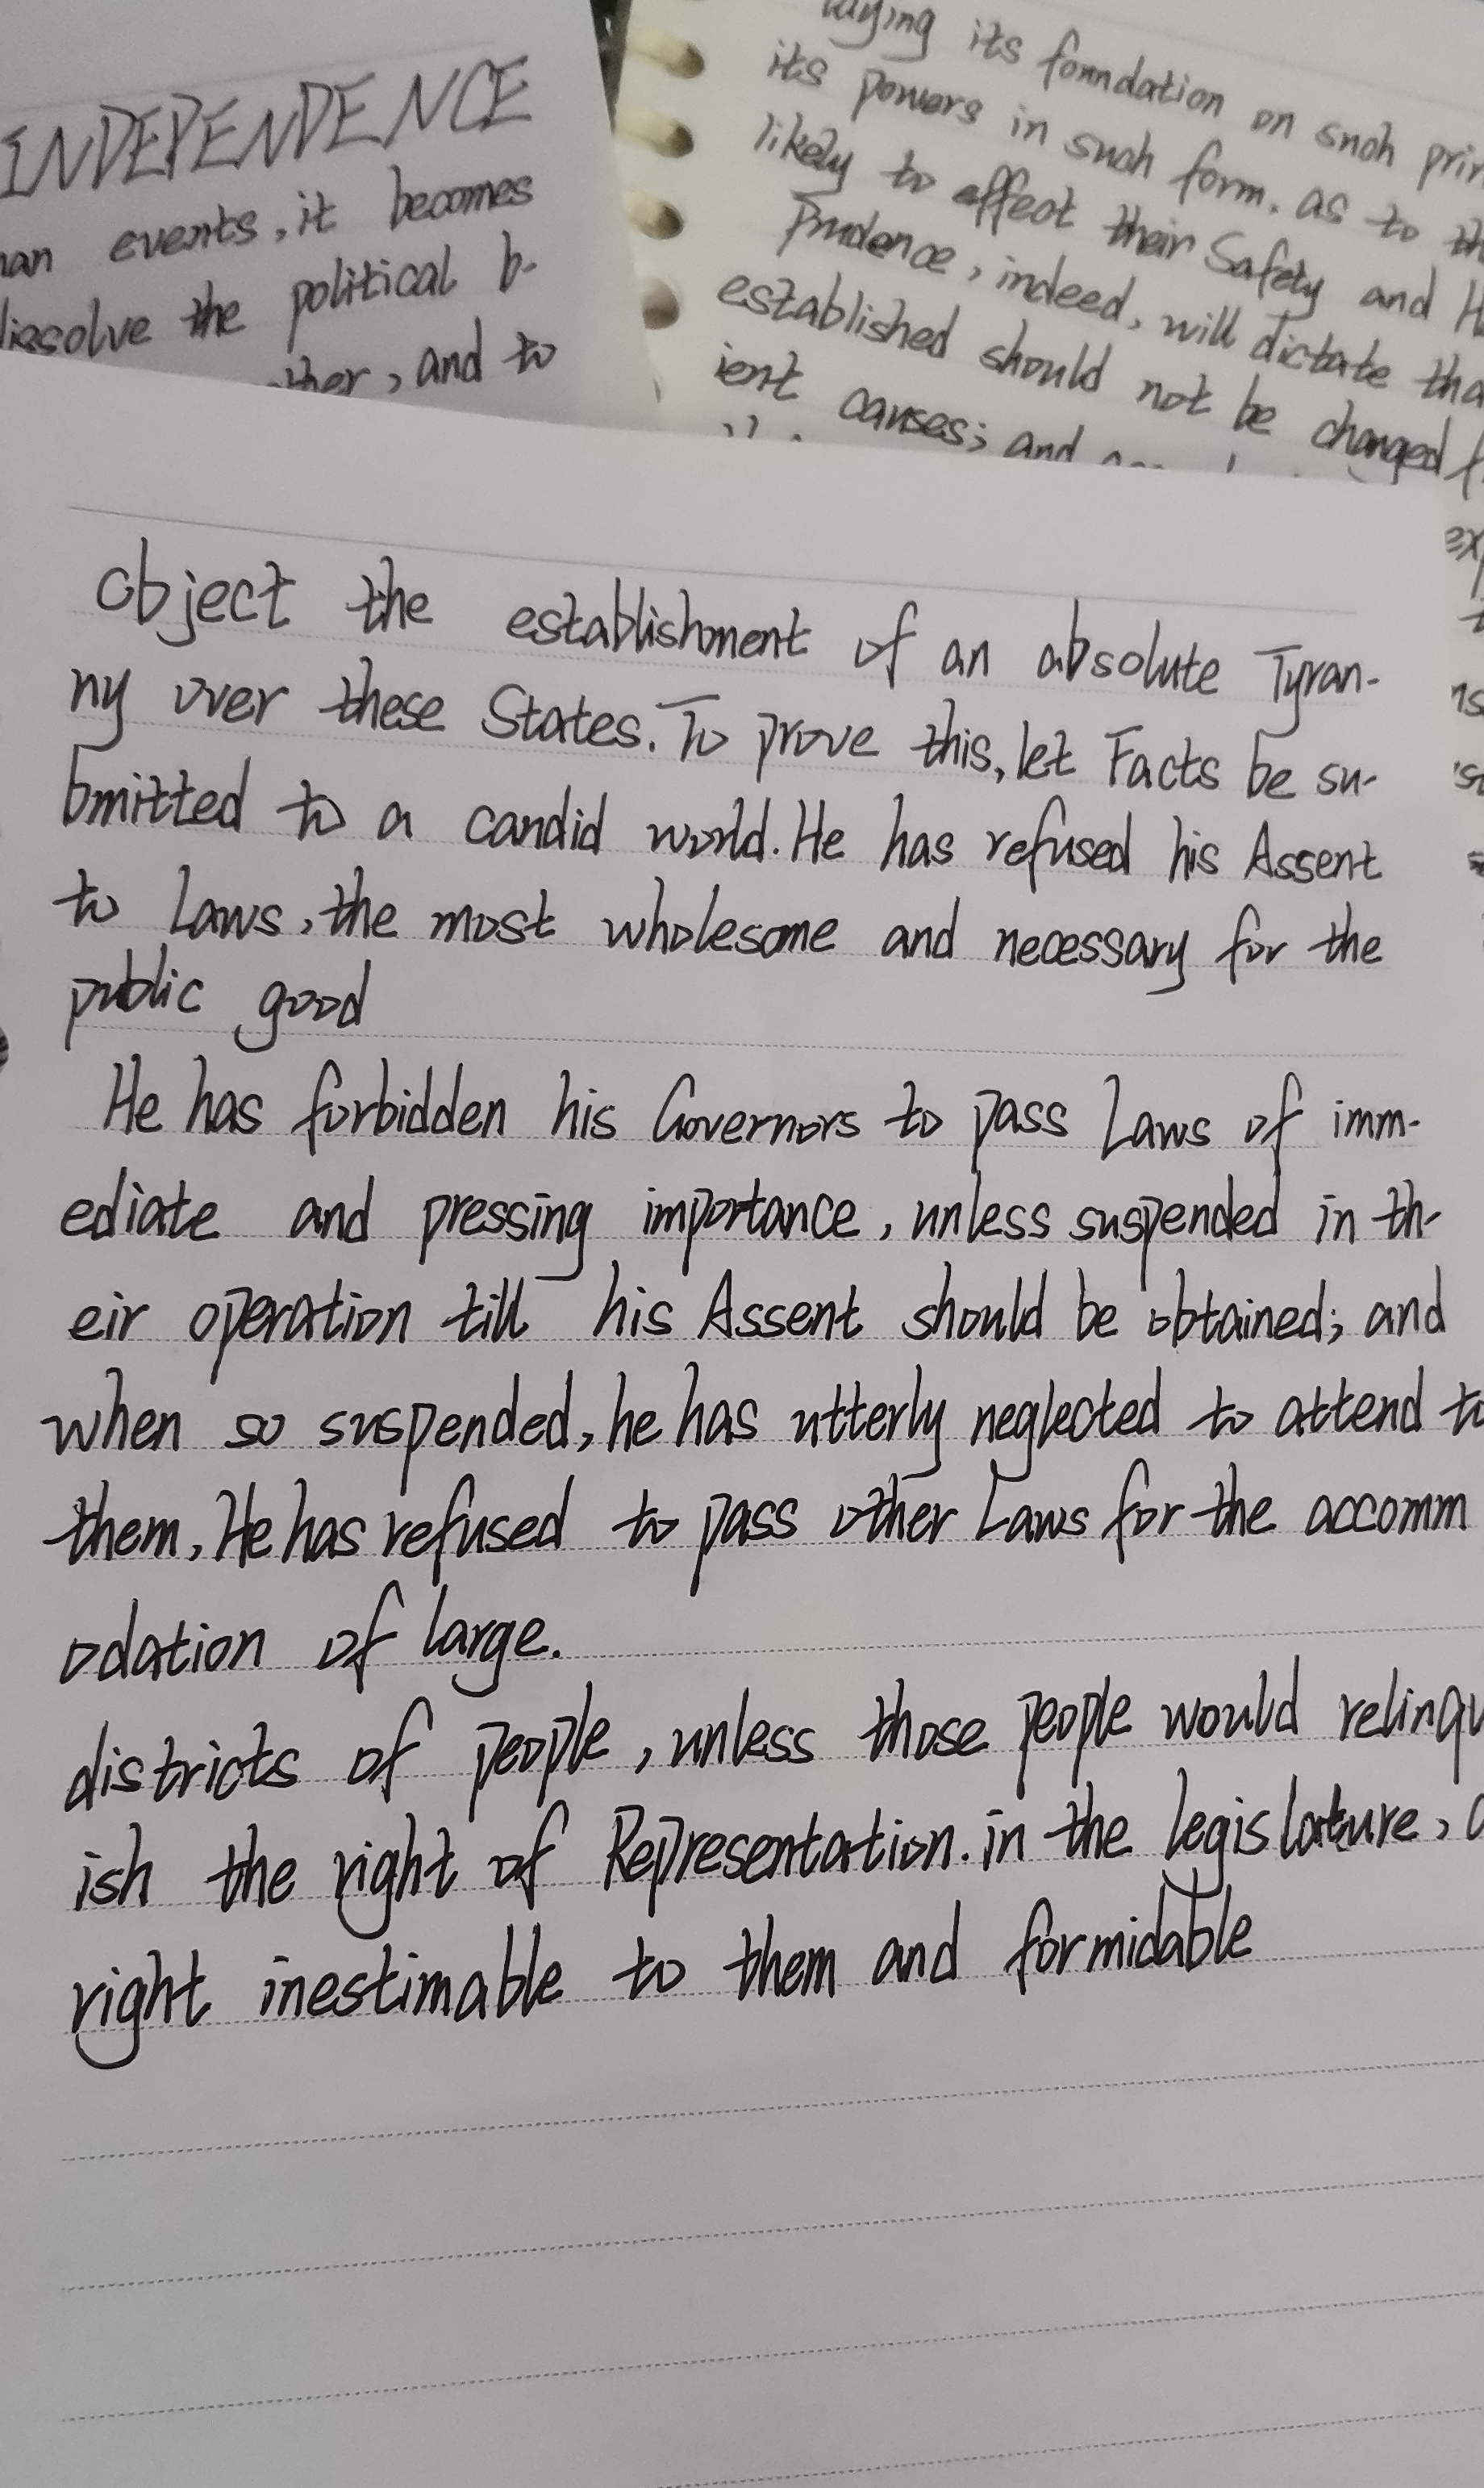 INDEPENDENCE
events, it becomes
the political b-
, and to
its foundation on snoh
its powers in such form. as to
likely to effect their Safety and
Prudence, indeed, will dictate
established should not be changed
ient causes; and
object the establishment of an absolute Tyran-
ny over these States. To prove this, let Facts be su-
bmitted to a candid world. He has refused his Assent
to Laws, the most wholesome and necessary for the
public good
He has forbidden his Governors to pass Laws of imm-
ediate and pressing importance, unless suspended in th-
eir operation till his Assent should be obtained; and
when so suspended, he has utterly neglected to attend to
them, He has refused to pass other Laws for the accomm
odation of large.
districts of people, unless those people would relinqu
ish the right of Representation. in the legislature, a
right inestimable to them and formidable